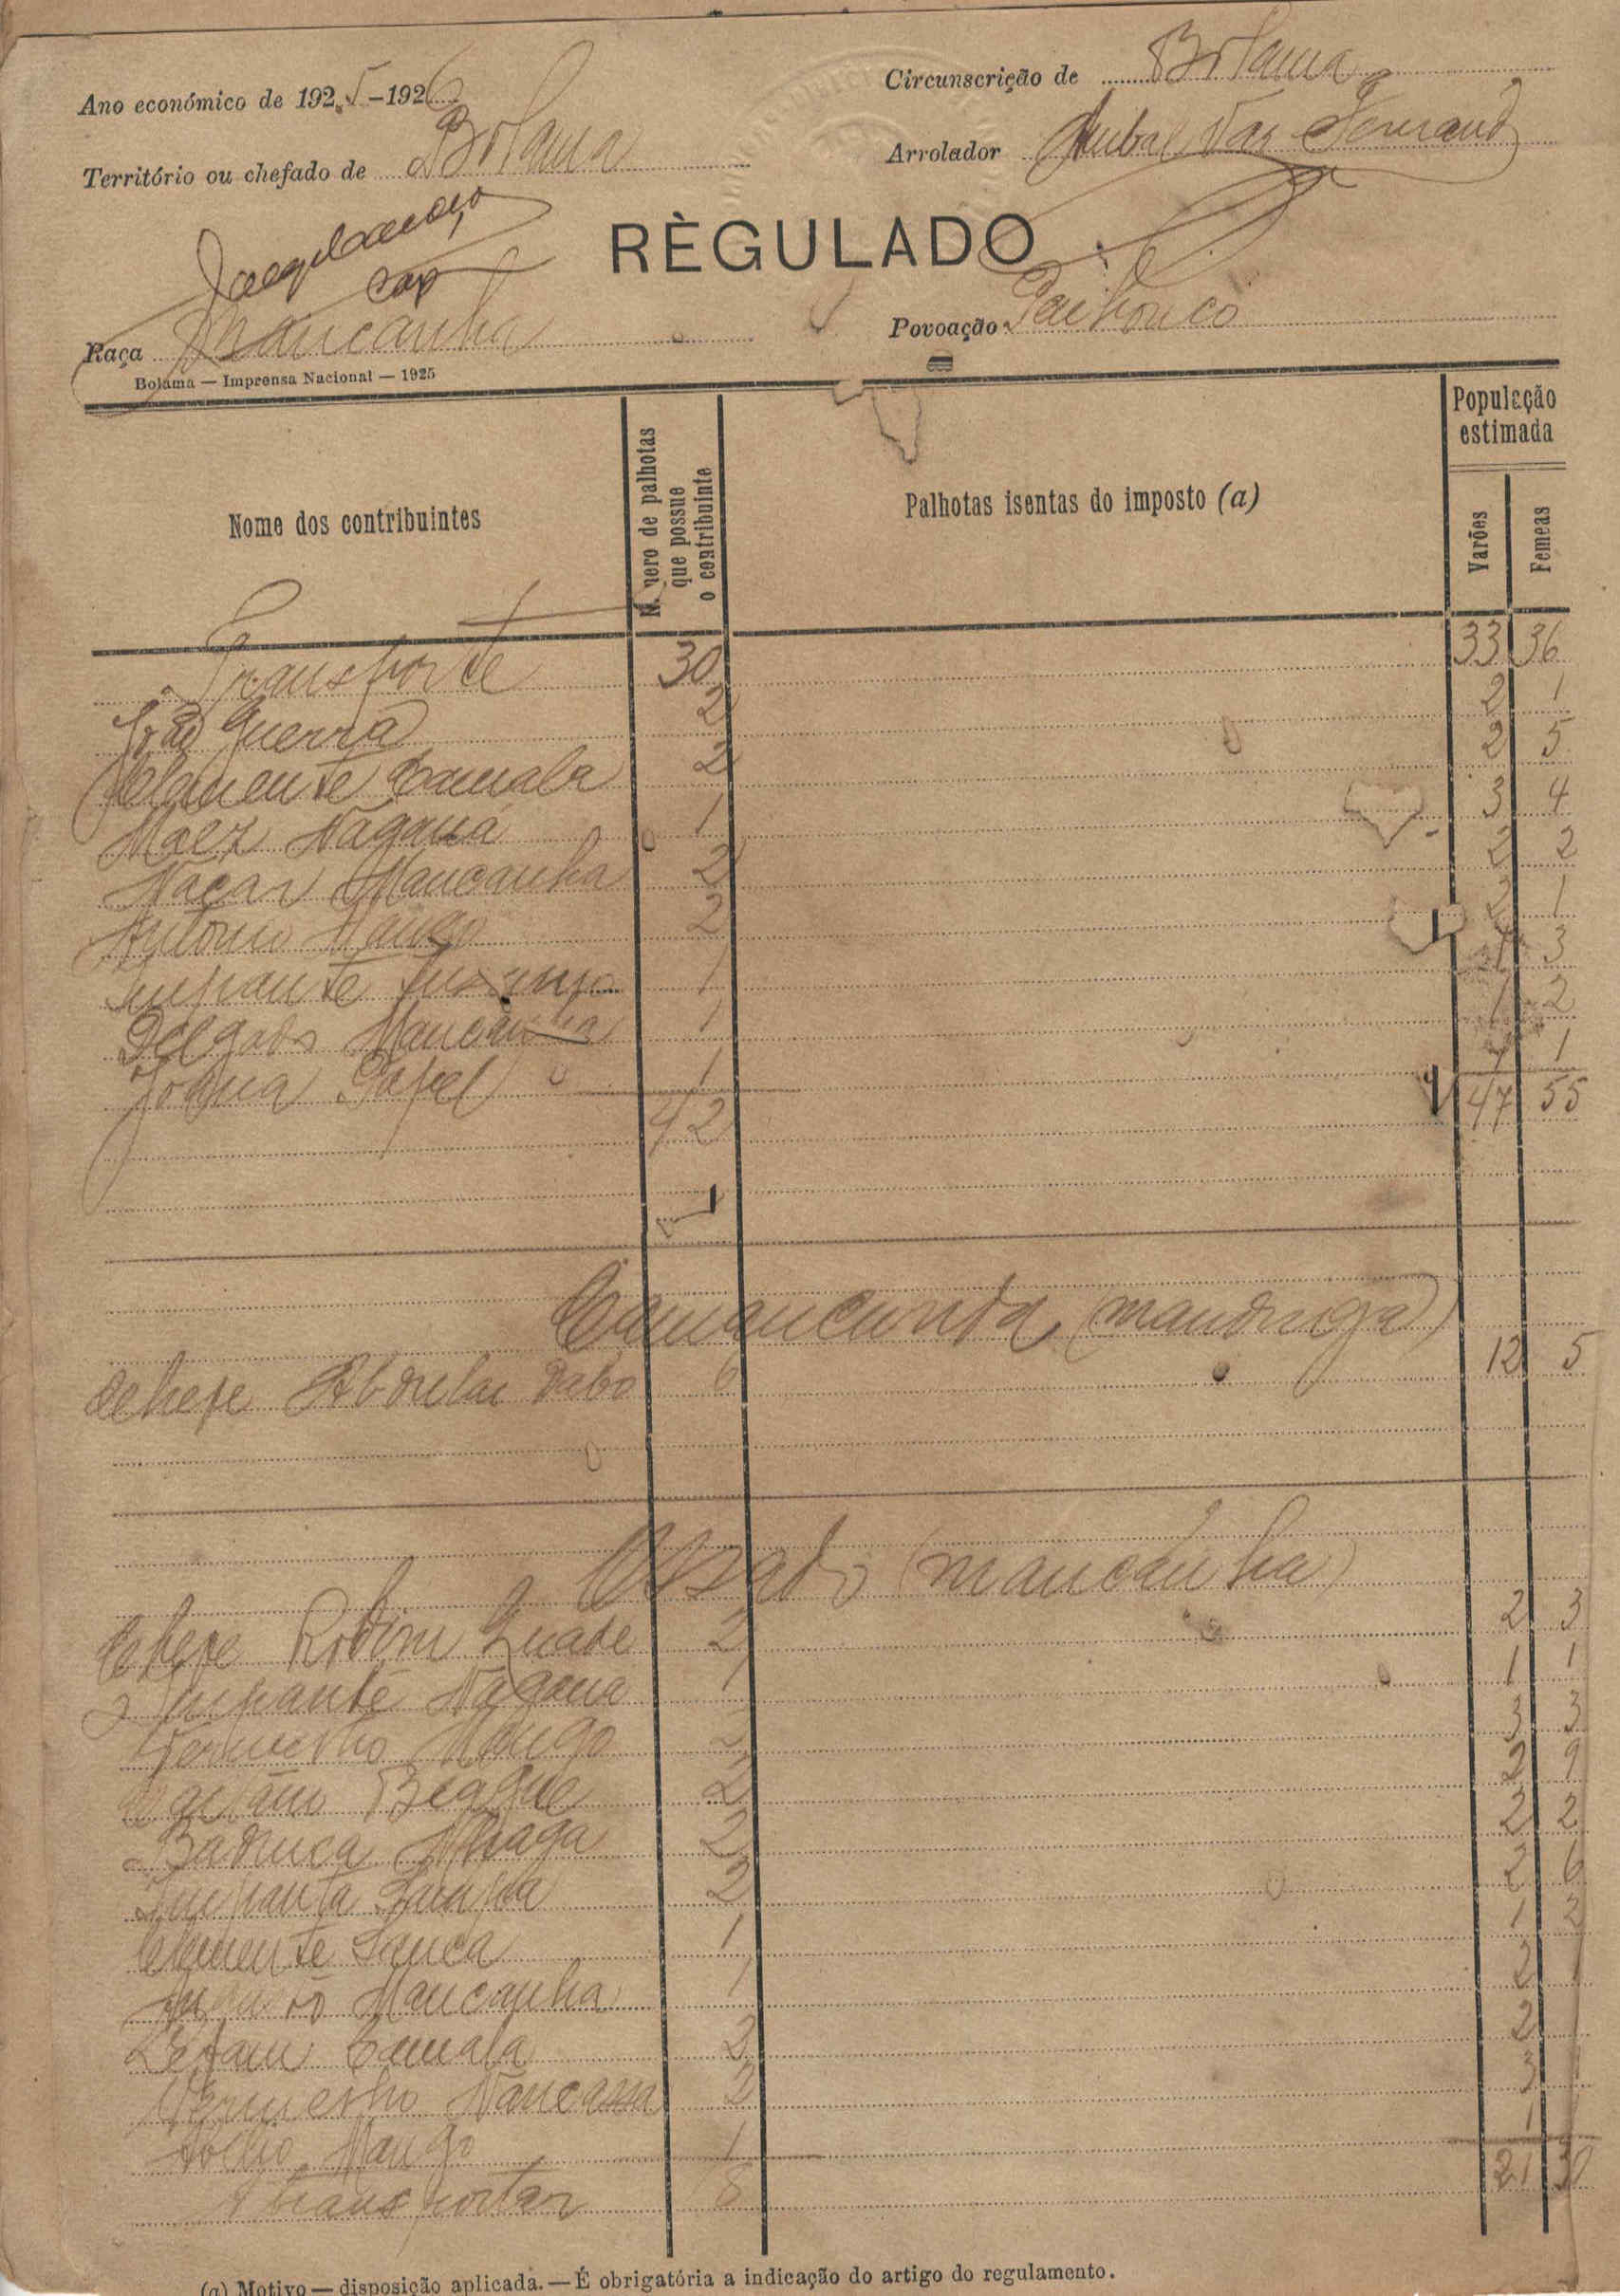 Ano económico de 1925-1926
Circunscrição de Bolama
Território ou chefado de Bolama
Arrolador
RÈGULADO
Raça Mancanha
Povoação
Bolama — Imprensa Nacional — 1925
Nome dos contribuintes
Número de palhotas que possue o contribuinte
Palhotas isentas do imposto (a)
População estimada
Varões
Femeas
Transporte 30 33 36
João Guerra 2 2 1
Clemente Camala 2 2 5
Nagana 1 3 4
Naçar Mancanha 2 2 2
António Mango 2 2 1
1 1 3
Delgado Mancanha 1 1 2
Joana Papel 1 1 1
42 47 55
(mandinga)
Chefe Abdulai Dabo 6 12 5
(mancanha)
Chefe 2 2 3
Nagana 1 1 1
Vermelho Mango 2 3 3
2 2 9
2 2 2
2 2 6
Clemente Sanca 1 1 2
Mancanha 1 2 1
Camala 2 2
Vermelho Nancassa 2 3
Mango 1 1
A transportar 18 21 30
(a) Motivo — disposição aplicada. — É obrigatória a indicação do artigo do regulamento.